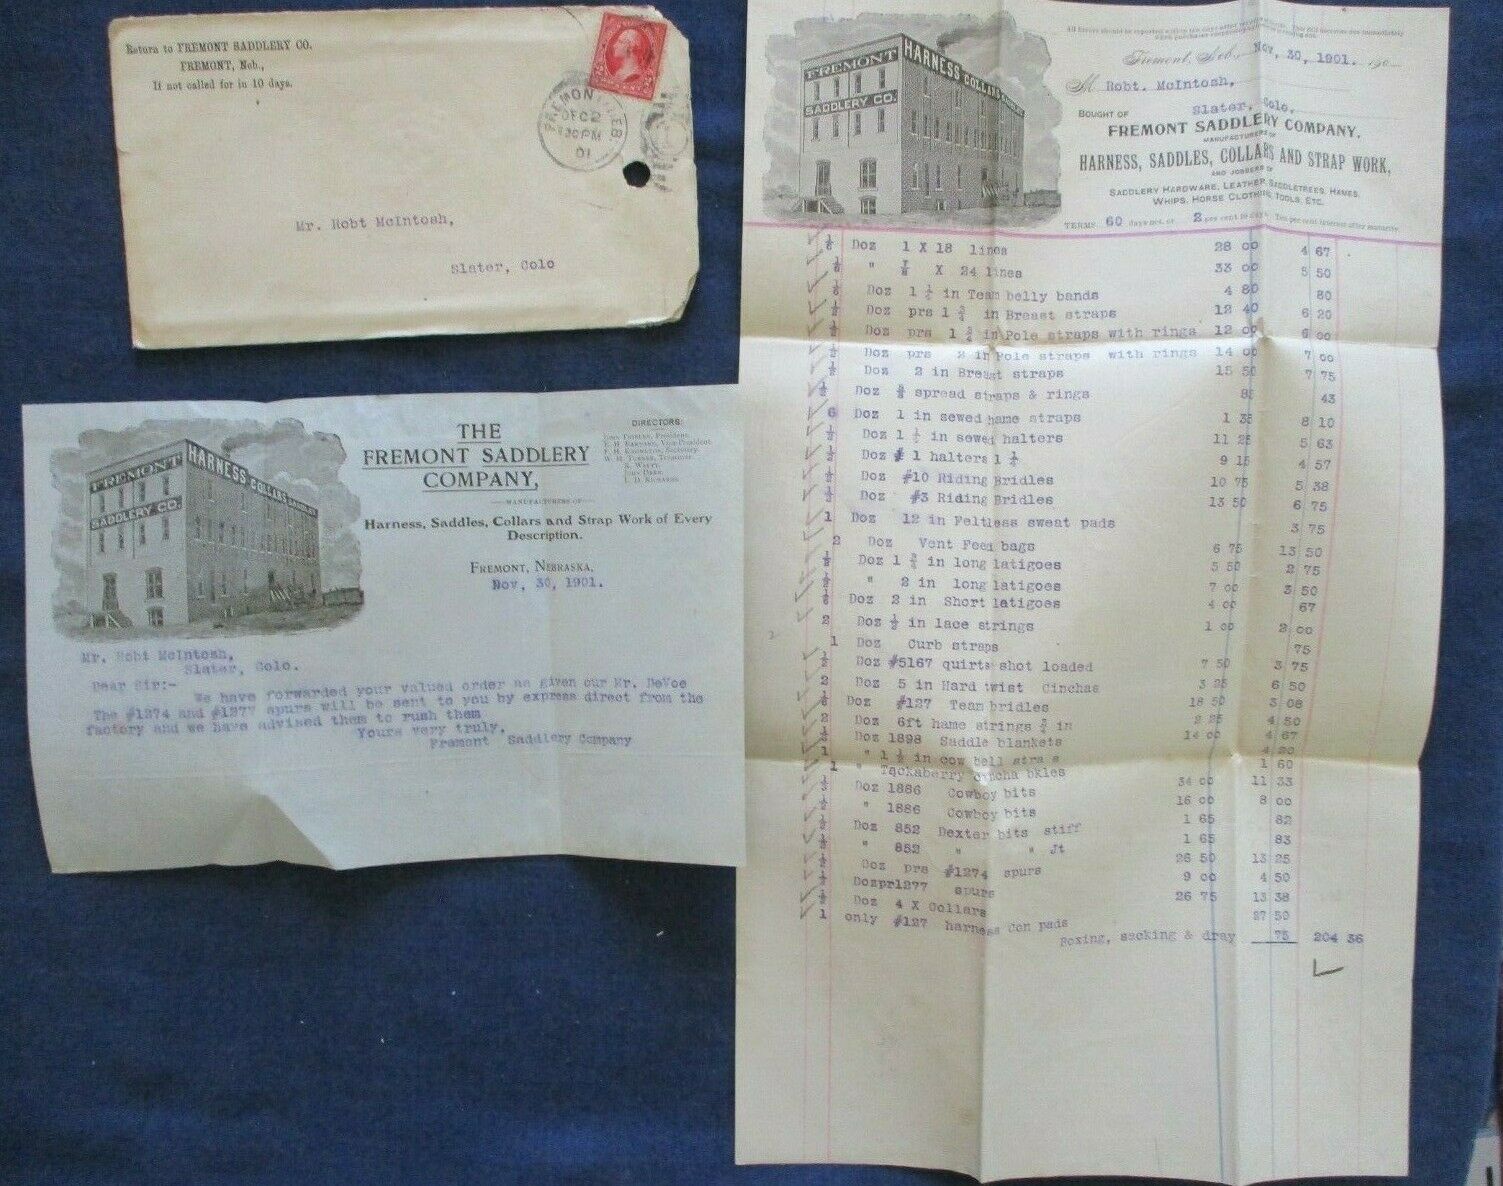 Return to FREMONT SADDLERY CO.
FREMONT, Neb.,
If not called for in 10 days.
FREMONT NEB.
DEC 2
30 PM
01
Mr. Robt McIntosh,
Slater, Colo
FREMONT
SADDLERY CO.
HARNESS COLLARS SADDLES
THE
FREMONT SADDLERY
COMPANY,
MANUFACTURERS OF
Harness, Saddles, Collars and Strap Work of Every
Description.
DIRECTORS:
FREMONT, NEBRASKA,
Nov, 30, 1901.
Mr. Robt McIntosh,
Slater, Colo.
Dear Sir:-
We have forwarded your valued order as given our Mr. DeVoe
The #1274 and #1277 spurs will be sent to you by express direct from the
factory and we have advised them to rush them
Yours very truly,
Fremont Saddlery Company
FREMONT
SADDLERY CO.
HARNESS COLLARS
Fremont, Neb., Nov, 30, 1901. 190
M Robt. McIntosh,
Slater, Colo,
BOUGHT OF
FREMONT SADDLERY COMPANY,
MANUFACTURERS OF
HARNESS, SADDLES, COLLARS AND STRAP WORK,
AND JOBBERS OF
SADDLERY HARDWARE, LEATHER, SADDLETREES, HAMES,
WHIPS, HORSE CLOTHING, TOOLS, ETC.
TERMS 60 days net, or 2 per cent 10 days. Ten per cent interest after maturity.
1/6 Doz 1 X 18 lines 28 00 4 67
1/6 " 7/8 X 24 lines 33 00 5 50
1/6 Doz 1 1/2 in Team belly bands 4 80 80
1/2 Doz prs 1 3/4 in Breast straps 12 40 6 20
1/2 Doz prs 1 3/4 in Pole straps with rings 12 00 6 00
1/2 Doz prs 2 in Pole straps with rings 14 00 7 00
1/2 Doz 2 in Breast straps 15 50 7 75
1/2 Doz spread straps & rings 85 43
6 Doz 1 in sewed hame straps 1 35 8 10
1/2 Doz 1 1/4 in sewed halters 11 25 5 63
1/2 Doz # 1 halters 1 1/4 9 15 4 57
1/2 Doz #10 Riding Bridles 10 75 5 38
1/2 Doz #3 Riding Bridles 13 50 6 75
1 Doz 12 in Feltless sweat pads 3 75
2 Doz Vent Feed bags 6 75 13 50
1/2 Doz 1 3/4 in long latigoes 5 50 2 75
1/2 " 2 in long latigoes 7 00 3 50
1/6 Doz 2 in Short latigoes 4 00 67
2 Doz 1/2 in lace strings 1 00 2 00
1 Doz Curb straps 75
1/2 Doz #5167 quirts shot loaded 7 50 3 75
2 Doz 5 in Hard twist Cinchas 3 25 6 50
1/6 Doz #127 Team bridles 18 50 3 08
2 Doz 6ft hame strings 3/4 in 2 25 4 50
1/3 Doz 1898 Saddle blankets 14 00 4 67
1 " 1 1/2 in cow bell stra s 4 20
1 " Tackaberry cincha bkles 1 60
1/3 Doz 1886 Cowboy bits 34 00 11 33
1/2 " 1886 Cowboy bits 16 00 8 00
1/2 Doz 852 Dexter bits stiff 1 65 82
1/2 " 852 " " Jt 1 65 83
1/2 Doz prs #1274 spurs 26 50 13 25
1/2 Dozpr1277 spurs 9 00 4 50
1/2 Doz 4 X Collars 26 75 13 38
1 only #127 harness Con pads 27 50
Boxing, sacking & dray 75 204 36